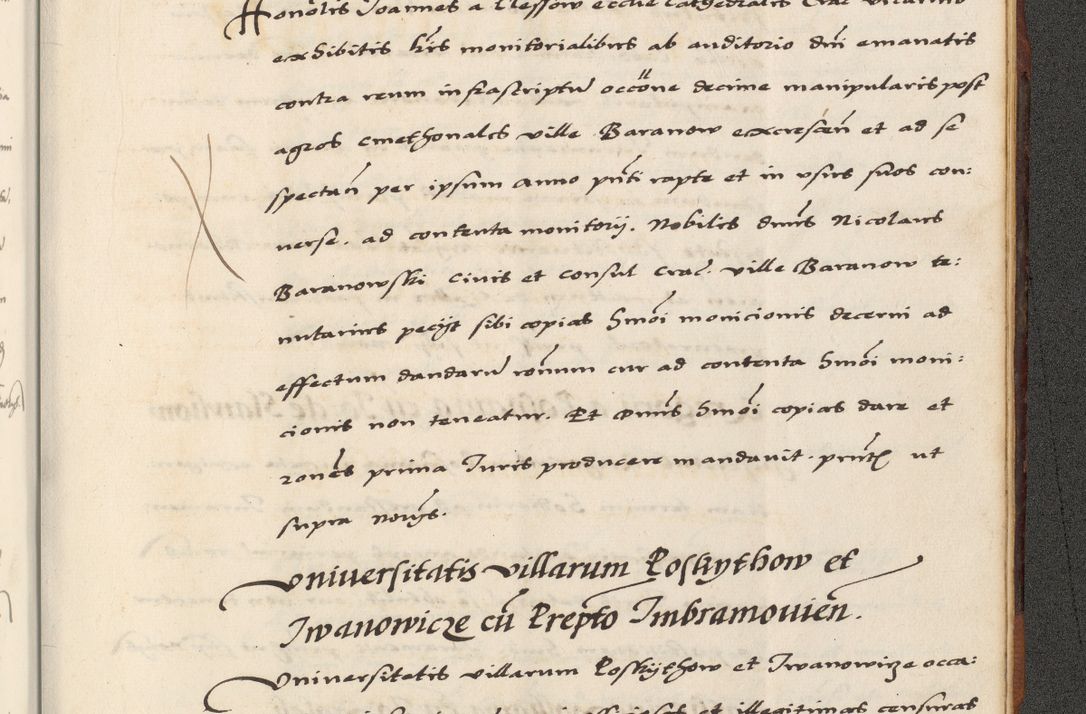 Honolis Joannes a Clessow ecclie Cathedralis Crac vicarius
exhibitis lris monitorialibus ab auditorio dni emanatis
contra reum infrascriptu occone decime manipularis post
agros cmethonales ville Baranow excrescen et ad se
spectan per ipsum anno pnti rapte et in usus suos con:
verse. ad contenta monitorij. Nobilis dnus Nicolaus
Baranowski civis et consul Crac. ville Baranow te:
nutarius pecijt sibi copias hmoi monicionis decerni ad
effectum dandaru ronum cur ad contenta hmoi moni:
cionis non teneatur. Et dnus hmoi copias dare et
rones prima Juris producere mandavit. pntibus ut
supra novijs.
Universitatis villarum Poskythow et
Iwanowicze cu Prepto Imbramovien.
Universitatis villarum Poskythow et Iwanowicze occa:
et illegitimas censuras